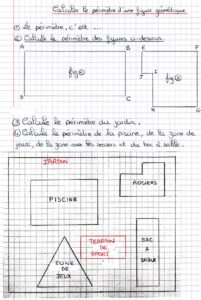 Calculer le périmètre d'une figure géométrique
① Le périmètre, c'est ....
② Calcule le périmètre des figures ci-dessous.
A B E F
fig①
J I
fig②
D C
H G
③ Calcule le périmètre du jardin.
④ Calcule le périmètre de la piscine, de la zone de
jeux, de la zone avec les rosiers et du bac à sable.
JARDIN
ROSIERS
PISCINE
TERRAIN
DE
SPORT
BAC
À
SABLE
ZONE
DE
JEUX